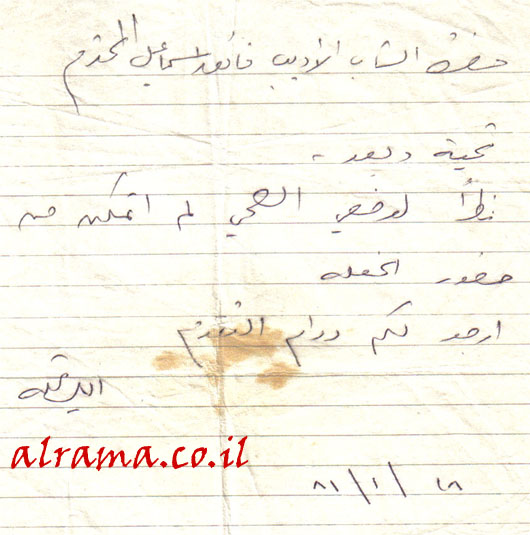 حضرة الشاب الأديب فائد اسماعيل المحترم
تحية وبعد،
نظراً لوضعي الصحي لم اتمكن من
حضور الحفله
ارجو لكم دوام التقدم
alrama.co.il
١٨/١/٨١